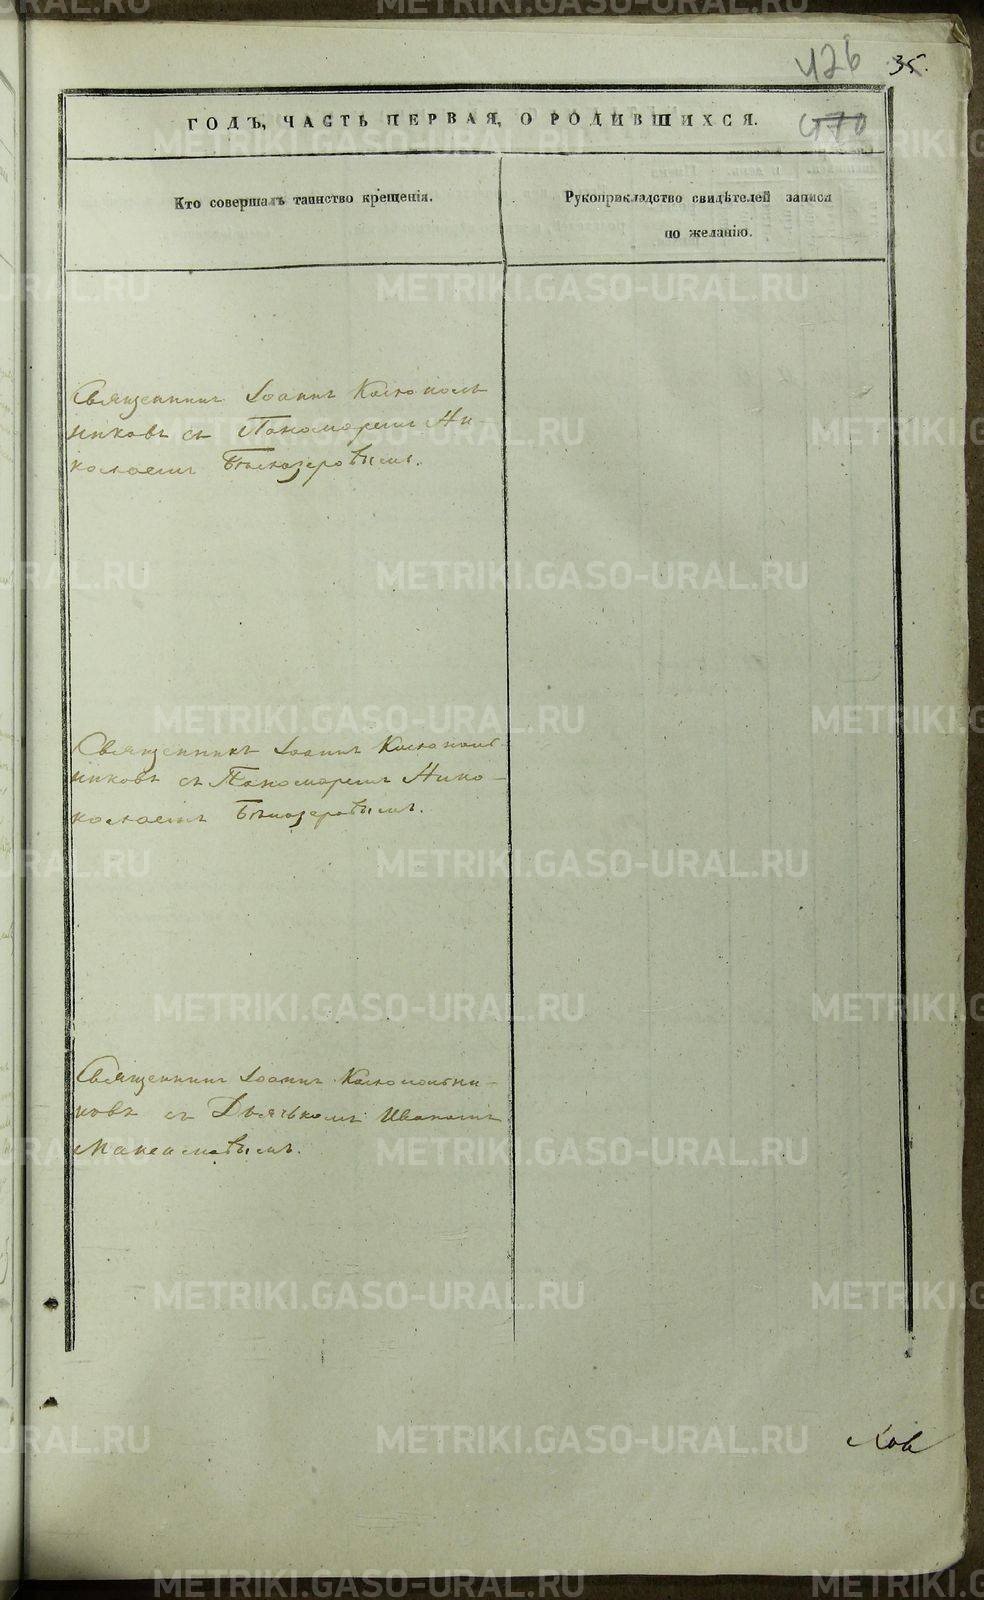 426 35.
470
ГОДЪ, ЧАСТЬ ПЕРВАЯ, О РОДИВШИХСЯ.
Кто совершалъ таинство крещенія.
Рукоприкладство свидѣтелей записи
по желанію.
Священникъ Іоаннъ Колокольниковъ
никовъ съ Пономаремъ Ни-
колаемъ Бѣлозеровымъ.
Священникъ Іоаннъ
никовъ съ Пономаремъ Нико-
колаемъ Бѣлозеровымъ.
Священникъ Іоаннъ
ковъ съ Дьячькомъ Иваномъ
Максимовымъ.
METRIKI.GASO-URAL.RU